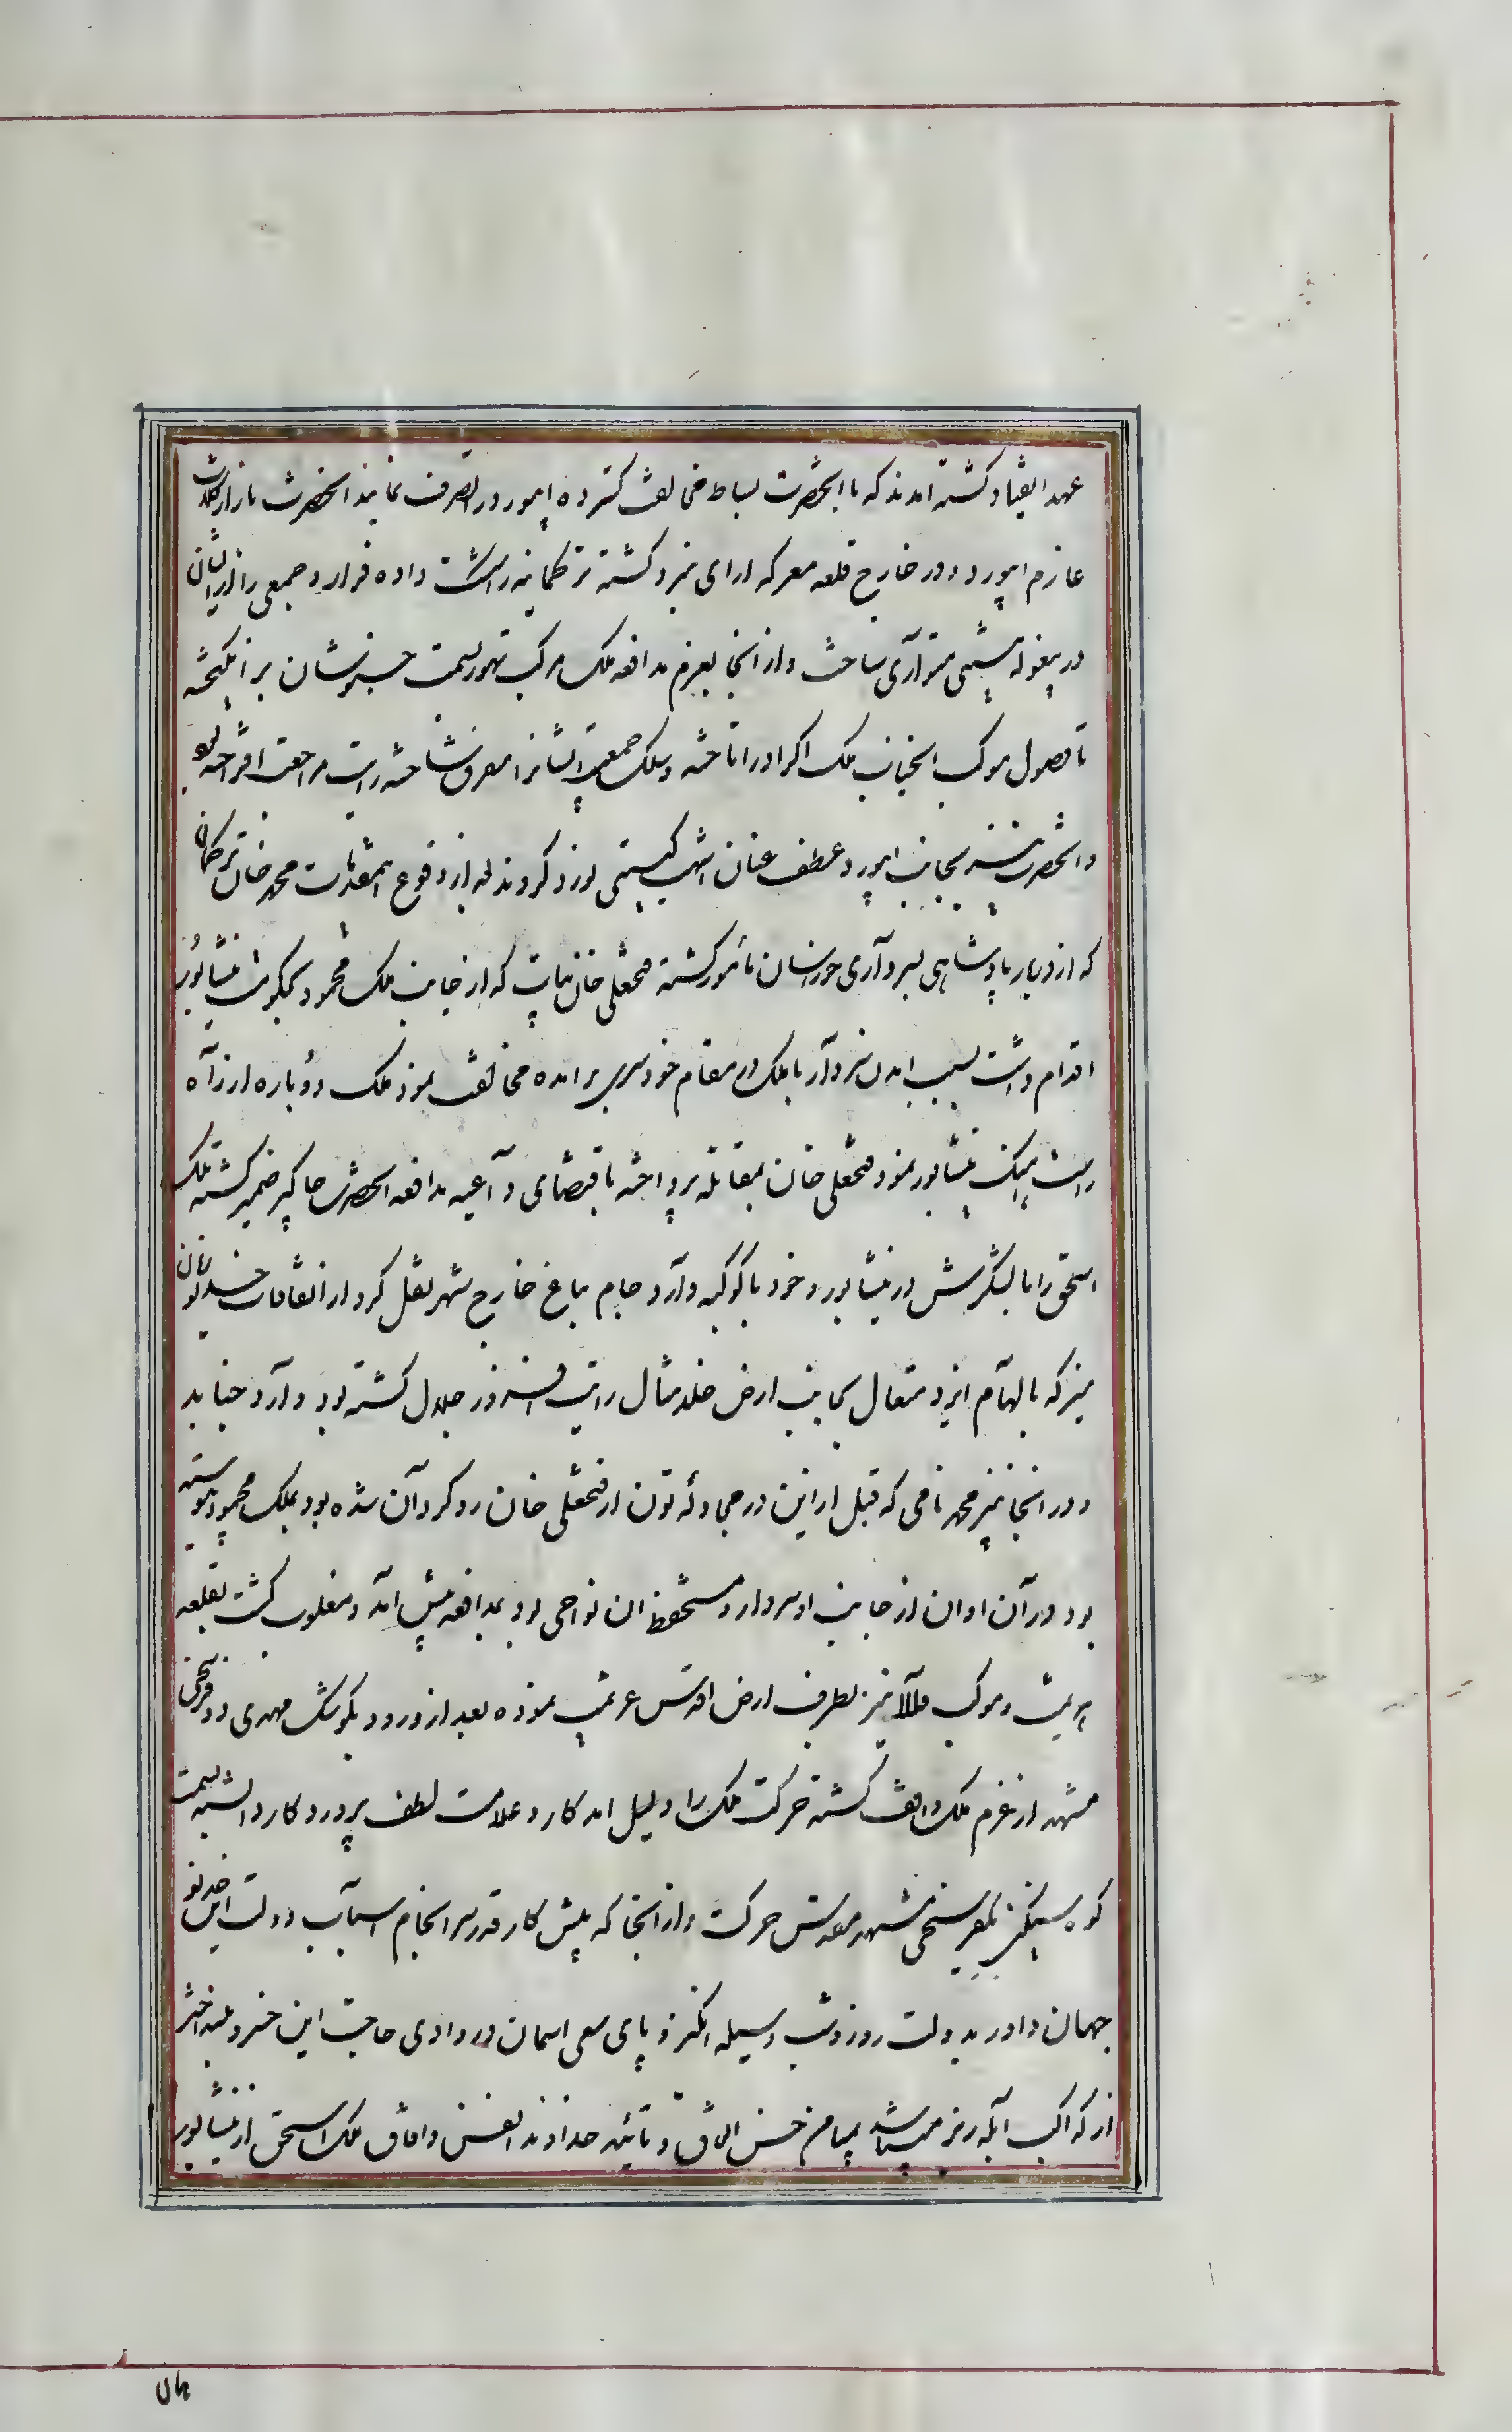 عهد انقیاد گشته آمدند که با آنحضرت بساط مخالفت گسترده ابیورد را تصرف نمایند آنحضرت باز از کلات
عازم ابیورد و در خارج قلعه معرکه ارای نبرد گشته ترکمانیه را شکست داده فرار و جمعی را از ایشان
در بیغوله نیستی متواری ساخت و از انجا بعزم مدافعه ملک مرکب تهور بسمت خبوشان بر انگیخته
تا وصول موکب انجناب ملک اکراد را تاخته و سلک جمعیت ایشانرا متفرق ساخته رایت مراجعت افراخته بود
و انحضرت نیز بجانب ابیورد عطف عنان اشهب گیتی نورد کردند بعد از وقوع اینمقدمات محمد خان ترکمان
که از دربار پادشاهی بسرداری خراسان مأمور گشته فتحعلی خان بیات که از جانب ملک محمود بحکومت نیشابور
اقدام داشت بسبب امدن سردار با ملک در مقام خودسری بر امده مخالفت نمود ملک دوباره از راه
رادکان آهنگ نیشابور نمود فتحعلی خان بمقاتله پرداخته باقتضای داعیه مدافعه انحضرت جاگیر ضمیر گشته ملک
اسحق را با لشکرش در نیشابور و خود با کوکبه وارد جام بباغ خارج شهر نقل کرد از اتفاقات خدیو زمان
نیز که بالهام ایزد متعال بجانب ارض خلد مثال رایت افروز جلال گشته بود وارد خبابد
و در انجا نیز محمد نامی که قبل از این در مجادله تون از فتحعلی خان روگردان شده بود بملک محمود پیوسته
بود در آن اوان از جانب او سردار و مستحفظ ان نواحی بود بمدافعه پیش آمد و مغلوب گشت بقلعه
هزیمت و موکب والا نیز بطرف ارض اقدس عزیمت نموده بعد از ورود بکوشک مهدی دو فرسخی
مشهد از عزم ملک واقف گشته حرکت ملک را دلیل امد کار و علامت لطف پروردگار دانسته بسمت
کوه سنگین نیم فرسخی مشهد مقدس حرکت و از انجا که پیش کار قدر سر انجام اسباب دولت این خدیو
جهان داور بدولت روز و شب وسیله انگیز و پای سعی اسمان در وادی حاجت این خسرو بلند اختر
از کواکب آبله ریز میباشد بمیامن حسن اتفاق و تائید خداوند انفس و افاق ملک اسحق از نیشابور